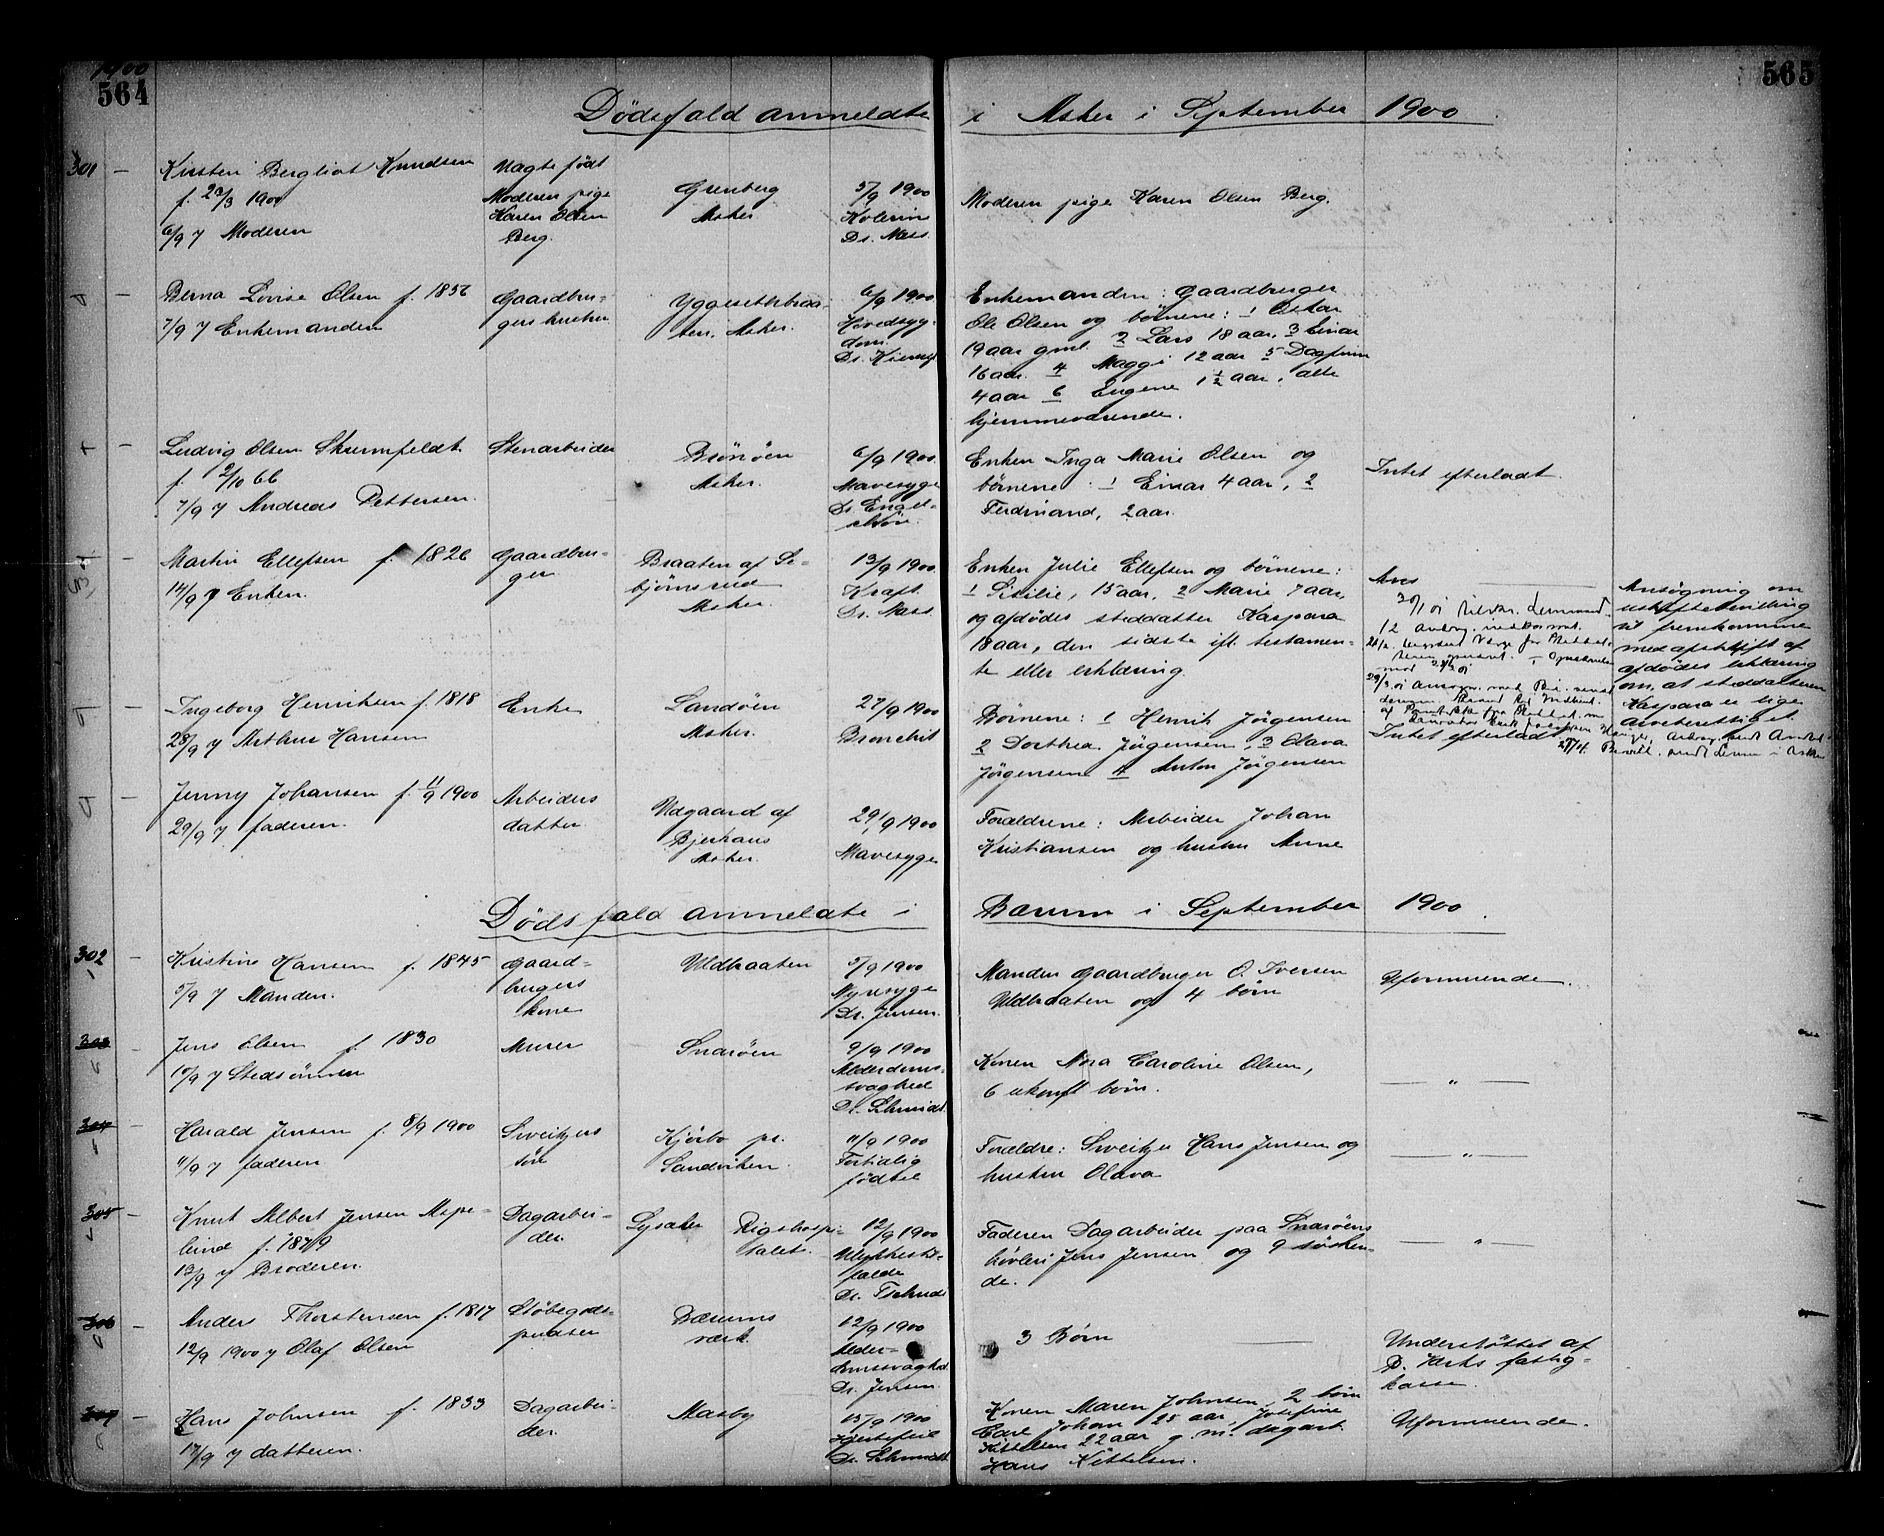 1900
564
565
Dødsfald anmeldte i Asker i September 1900
301 — Kirsten Bergliot Knudsen
f. 23/3 1900
6/9 7 Moderen
Uægte født
Moderen pige
Karen Olsen
Berg.
Grenberg
Asker.
5/9 1900
Kolerine
Dr. Mass.
Moderen pige Karen Olsen Berg.
Berna Lovise Olsen f. 1856
7/9 7 Enkemanden
Gaardbru-
gers hustru
Yggesethbraa-
ten, Asker.
6/9 1900
Hovedsyg-
dom.
Enkemanden: Gaardbruger
Ole Olsen og børnene: 1 Oskar
19 aar gml. 2 Lars 18 aar, 3 Einar
16 aar. 4 Maggi 12 aar 5 Dagfinn
4 aar 6 Eugene 1 1/2 aar, alle
hjemmeværende.
Ludvig Olsen Skrumfeldt
f. 2/10 66
7/9 7 Andreas Pettersen.
Stenarbeider
Brønøen
Asker.
6/9 1900.
Mavesyge
Dr. Engel-
schiøn.
Enken Inga Marie Olsen og
børnene: 1 Einar 4 aar, 2
Ferdinand, 2 aar.
Intet efterladt.
Martin Ellefsen f. 1826
14/9 7 Enken.
Gaardbru-
ger
Braaten af Se-
bjørnsrud
Asker.
13/9 1900.
Kræft
Dr. Mass.
Enken Julie Ellefsen og børnene:
1 Sisilie, 15 aar, 2 Marie 7 aar,
og afdødes steddatter Kaspara
18 aar, den sidste ift. testamen-
te eller erklæring.
Ansøgning om
uskiftebevilling
til fremkomme
med afskrift af
afdødes erklæring
om, at steddatteren
Kaspara er lige
arveberettiget.
Ingeborg Henriksen f. 1818
28/9 7 Arthur Hansen
Enke
Landøen
Asker.
27/9 1900
Bronchit
Børnene: 1 Henrik Jørgensen
2 Dorthea Jørgensen, 3 Olava
Jørgensen 4 Anton Jørgensen
Intet efterladt
Jenny Johansen f. 11/9 1900
29/9 7 faderen.
Arbeiders
datter
Udgaard af
Bjerkaas
Asker.
29/9 1900
Mavesyge
Forældrene: Arbeider Johan
Kristiansen og hustru Anne
Dødsfald anmeldte i Bærum i September 1900.
302 — Kristine Hansen f. 1845
5/9 7 Manden.
Gaard-
brugers
kone
Uldbraaten
5/9 1900
Nyresyge
Dr. Jensen.
Manden gaardbruger O. Iversen
Uldbraaten og 4 børn
Uformuende.
303 — Jens Olsen f. 1830
10/9 7 Stedsønnen
Murer
Snarøen
9/9 1900
Alderdoms-
svaghed
Dr. Schmidt.
Konen Nora Caroline Olsen,
6 ukonft børn.
— " —
304 — Harald Jensen f. 8/9 1900
11/9 7 faderen
Sveitzers
søn
Kjørbo pr.
Sandviken.
11/9 1900
Fortidlig
fødsel
Forældre: Sveitzer Hans Jensen og
hustru Olava
— " —
305 — Knut Albert Jensen Aspe-
lund f. 1879
13/9 7 Broderen.
Dagarbei-
der.
Lysaker
Rigshospi-
talet.
12/9 1900
Ulykkestil-
fælde
Faderen Dagarbeider paa Snarøens
høvleri Jens Jensen og 9 søsken-
de.
— " —
306 — Anders Thorstensen f. 1817
12/9 1900 7 Olaf Olsen
Støbegods-
pudser
Bærums
værk.
12/9 1900
Alder-
domssvaghed
Dr. Jensen.
3 Børn
Understøttet af
B. Værks fattig-
kasse.
307 — Hans Johnsen f. 1833
17/9 7 datteren.
Dagarbei-
der.
Aasby
15/9 1900
Hjertefeil
Dr. Schmidt
Konen Maren Johnsen, 2 børn
Carl Johan 25 aar, Josefine
Kittelsen 22 aar g. m. dagarb.
Hans Kittelsen.
Uformuende.